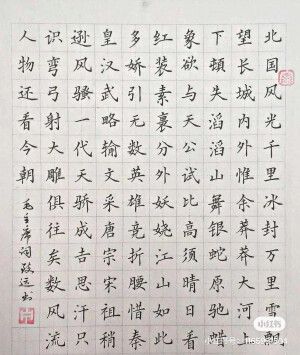 北国风光千里冰封万里雪飘
望长城内外惟余莽莽大河上
下顿失滔滔山舞银蛇原驰蜡
象欲与天公试比高须晴日看
红装素裹分外妖娆江山如此
多娇引无数英雄竞折腰惜秦
皇汉武略输文采唐宗宋祖稍
逊风骚一代天骄成吉思汗只
识弯弓射大雕俱往矣数风流
人物还看今朝
毛主席词
小红书